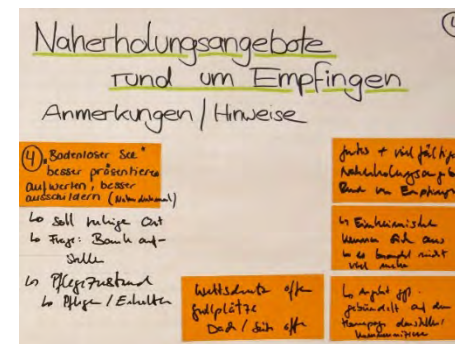 Naherholungsangebote
rund um Empfingen
Anmerkungen / Hinweise
④ "Bodenloser See"
besser präsentieren
aufwerten, besser
ausschildern (Naturdenkmal)
↳ soll ruhige Ort
↳ Frage: Bank auf-
stellen
↳ Pflegezustand
↳ Pflege / Erhalten
offen
Grillplätze
Dach / Seite offen
gutes + vielfältiges
Naherholungsangebot
Rund um Empfingen
↳ Einheimische
kennen sich aus
↳ es braucht nicht
viel mehr
↳ Angebot ggf.
gebündelt auf der
Homepage darstellen /
kommunizieren